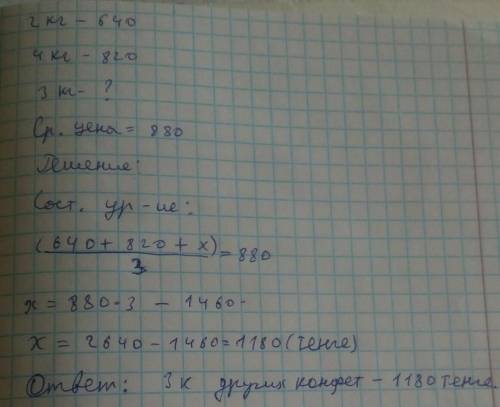 2 кг - 640
4 кг - 820
3 кг - ?
Ср. цена = 880
Решение:
Сост. ур-ие:
(640 + 820 + x) / 3 = 880
x = 880·3 - 1460
x = 2640 - 1460 = 1180 (тенге)
Ответ: 3 к других конфет - 1180 тенге.